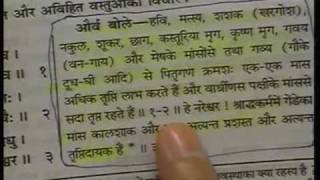 न और अविहित वस्तुओंका विचार
और्व बोले—हवि, मत्स्य, शशक (खरगोश),
नकुल, शूकर, छाग, कस्तूरिया मृग, कृष्ण मृग, गवय
(वन-गाय) और मेषके मांसोंसे तथा गव्य (गौके
१ दूध-घी आदि) से पितृगण क्रमशः एक-एक मास
अधिक तृप्ति लाभ करते हैं और वार्ध्रीणस पक्षीके मांससे
२ सदा तृप्त रहते हैं ॥ १-२ ॥ हे नरेश्वर ! श्राद्धकर्ममें गेंडेका
मांस कालशाक और अत्यन्त प्रशस्त और अत्यन्त
३ तृप्तिदायक हैं * ॥